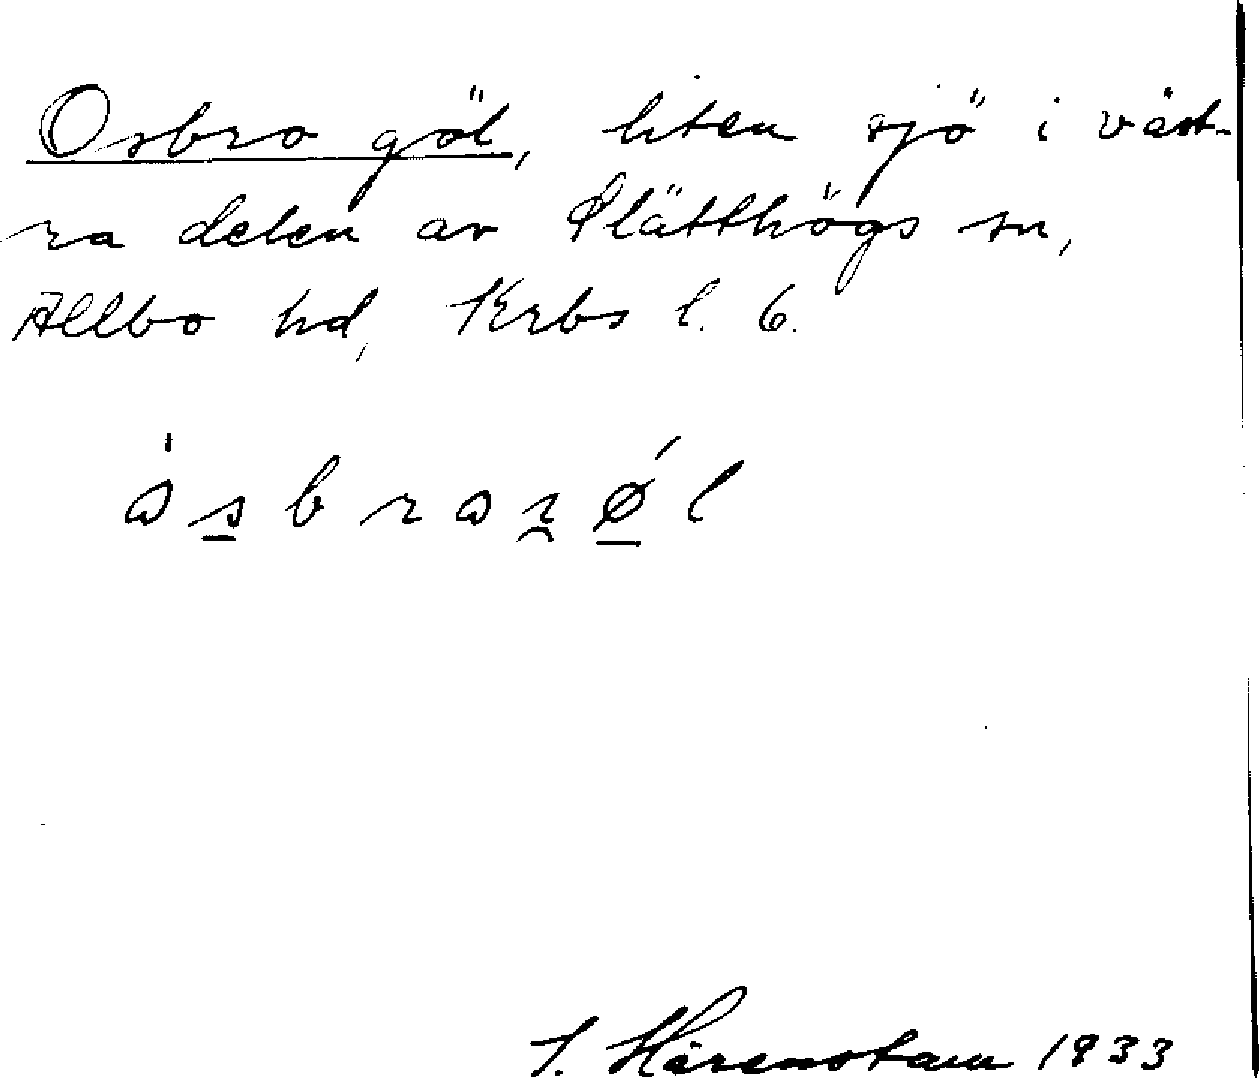 Osbro göl, liten sjö i väst-
ra delen av Slätthögs sn,
Allbo hd, Krbs l. 6.
J. Härenstam 1933